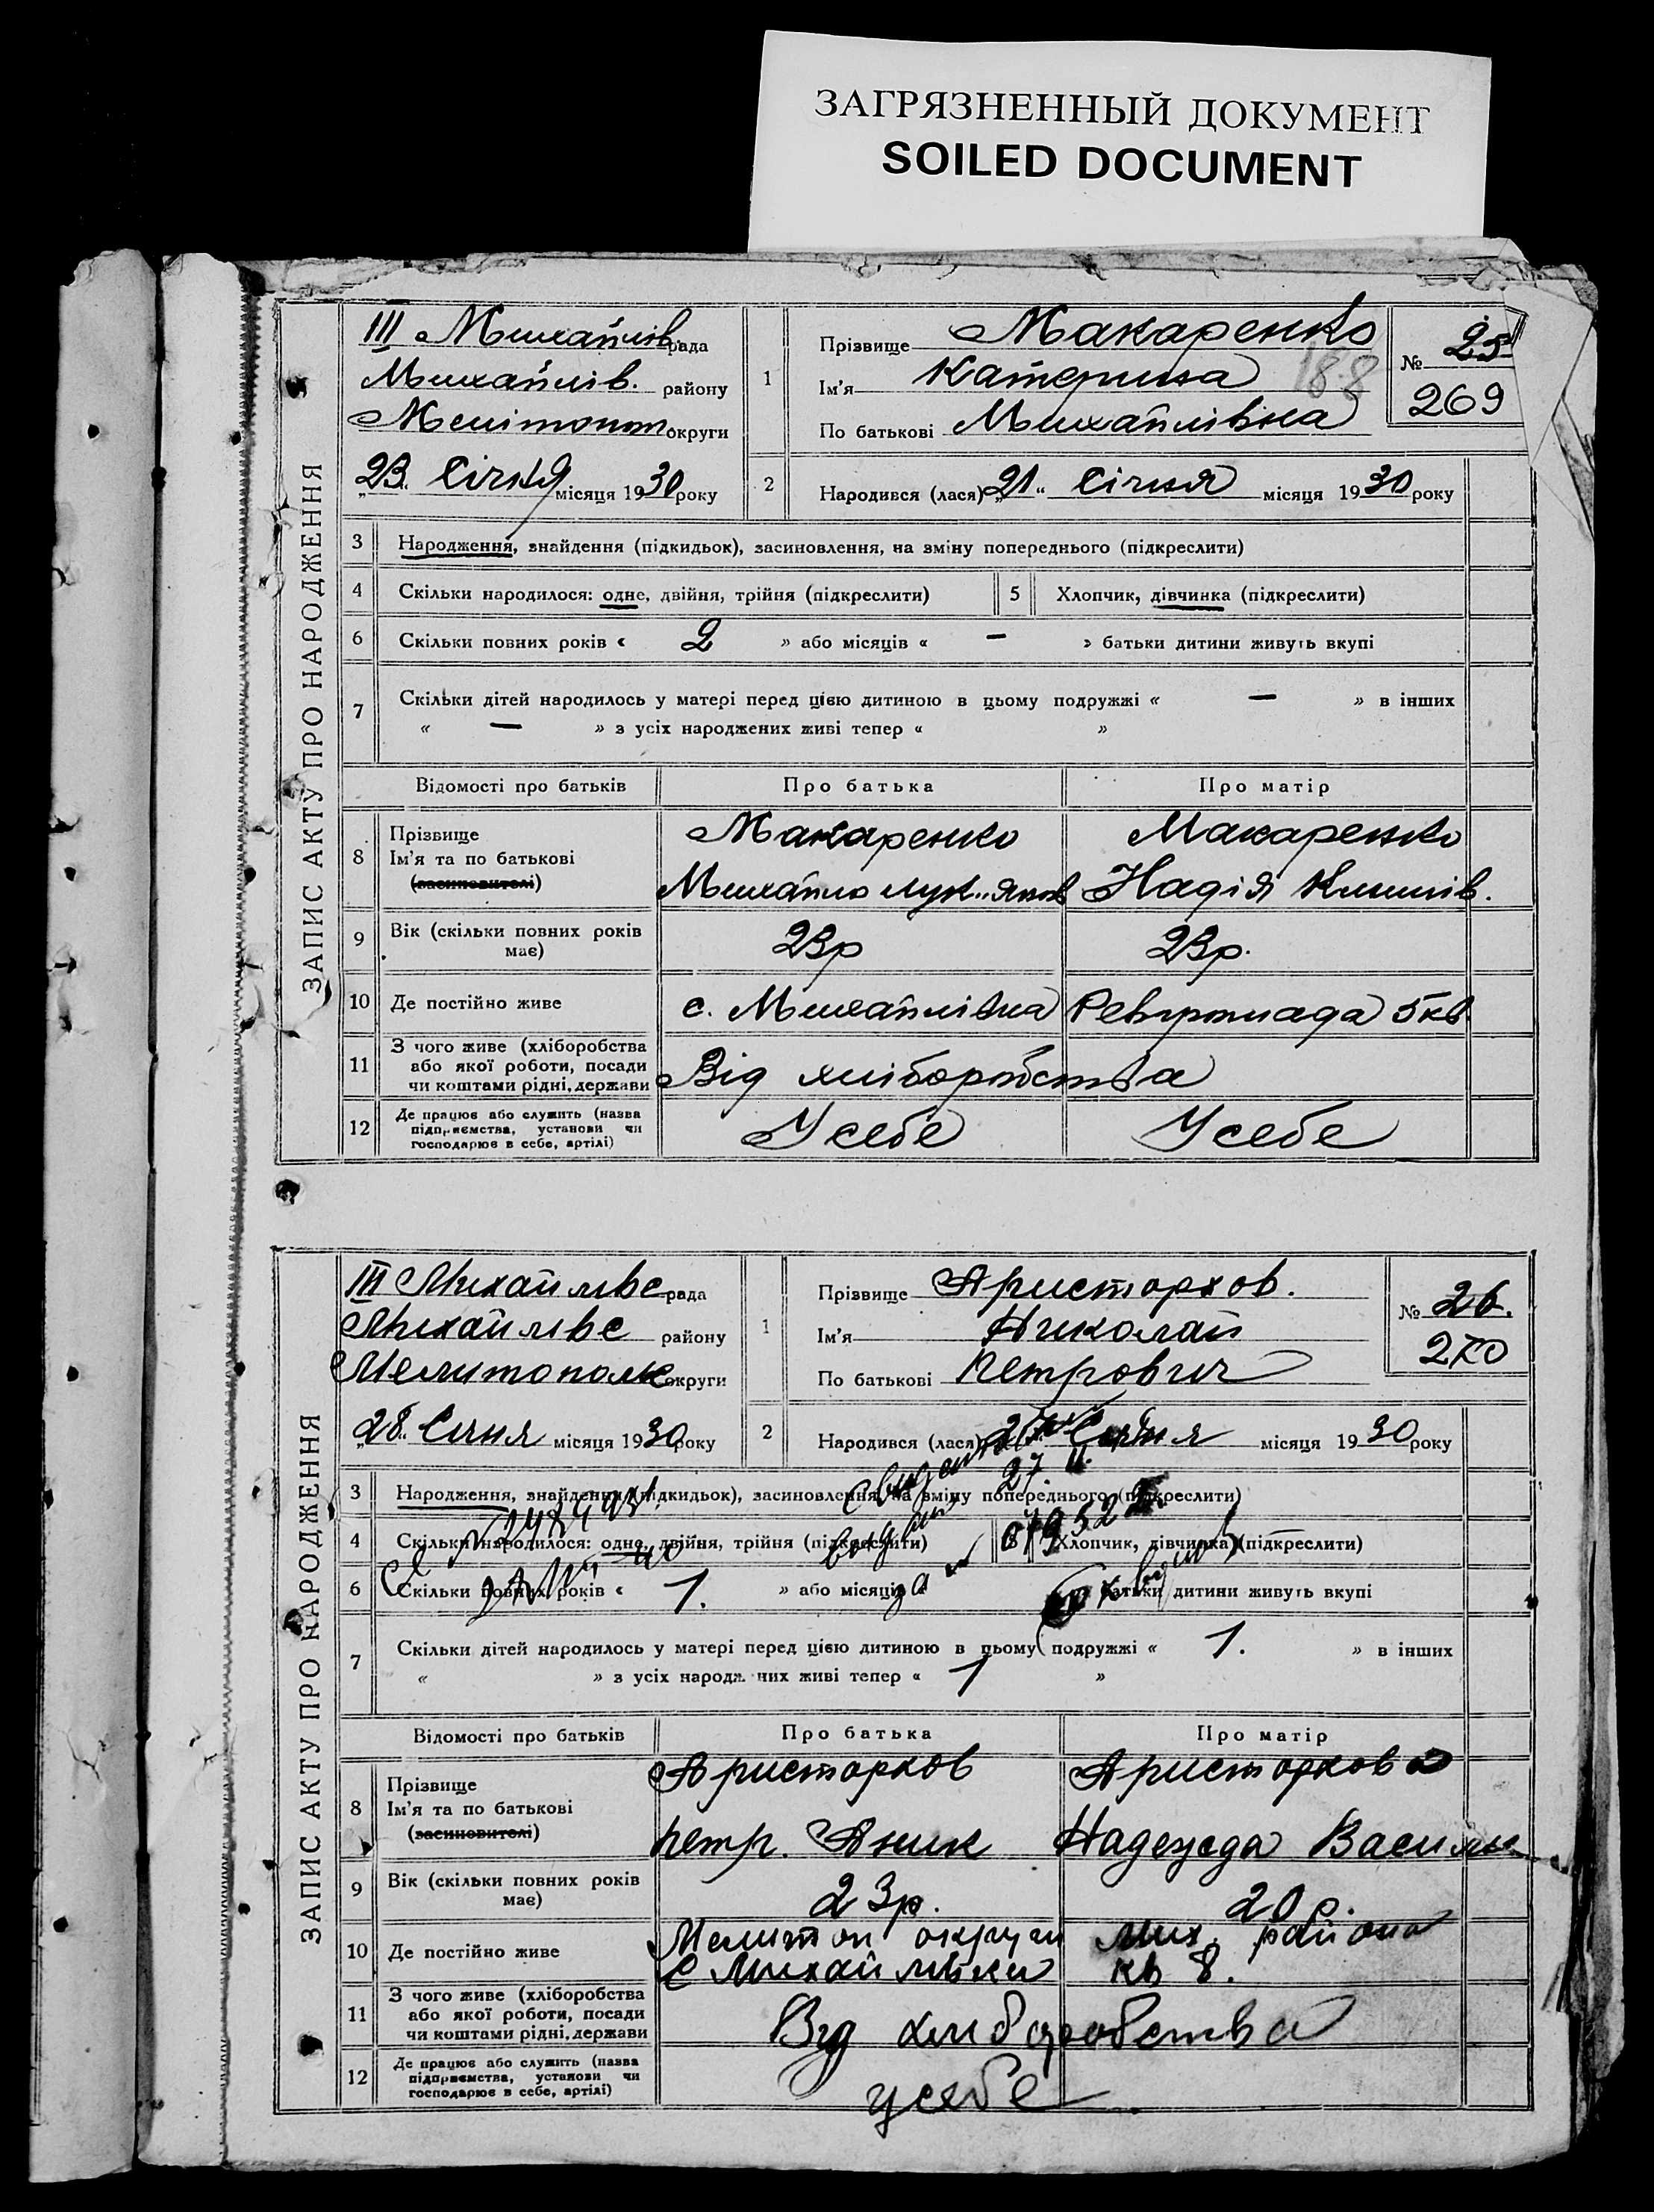 ЗАГРЯЗНЕННЫЙ ДОКУМЕНТ
SOILED DOCUMENT
ЗАПИС АКТУ ПРО НАРОДЖЕННЯ
III Михайлів. рада
Михайлів. району
Мелітоп округи
„23„ Січня місяця 1930 року
1
Прізвище Макаренко
Ім'я Катерина
188
По батькові Михайлівна
№ 25
269
2
Народився (лася) „21“ Січня місяця 1930 року
3 Народження, знайдення (підкидьок), засиновлення, на зміну попереднього (підкреслити)
4 Скільки народилося: одне, двійня, трійня (підкреслити) 5 Хлопчик, дівчинка (підкреслити)
6 Скільки повних років « 2 » або місяців « — » батьки дитини живуть вкупі
7 Скільки дітей народилось у матері перед цією дитиною в цьому подружжі « — » в інших
« — » з усіх народжених живі тепер « »
Відомості про батьків Про батька Про матір
8 Прізвище
Ім'я та по батькові
(засиновителі)
Макаренко Макаренко
Михайло Надія
9 Вік (скільки повних років має) 23р 23р.
10 Де постійно живе с. Михайлівна 5 кв
11 З чого живе (хліборобства
або якої роботи, посади
чи коштами рідні, держави
Від хліборобства
12 Де працює або служить (назва
підприємства, установи чи
господарює в себе, артілі)
У себе У себе
ЗАПИС АКТУ ПРО НАРОДЖЕННЯ
III Михайлівс рада
Михайлівс району
Мелитопольс округи
„28„ Січня місяця 1930 року
1
Прізвище Аристархов.
Ім'я Николай
По батькові Петрович
№ 26.
270
2
Народився (лася) Січня місяця 1930 року
27 II.
3 Народження, знайдення (підкидьок), засиновлення, на зміну попереднього (підкреслити)
4 Скільки народилося: одне, двійня, трійня (підкреслити) 5 Хлопчик, дівчинка (підкреслити)
6 Скільки повних років « 1. » або місяців « батьки дитини живуть вкупі
7 Скільки дітей народилось у матері перед цією дитиною в цьому подружжі « 1. » в інших
« » з усіх народжених живі тепер « 1 »
Відомості про батьків Про батька Про матір
8 Прізвище
Ім'я та по батькові
(засиновителі)
Аристархов Аристархова
петр. Аник Надежда Василь
9 Вік (скільки повних років має) 23р. 20 р.
10 Де постійно живе
Мелитоп округи мих. района
С Михайлівки кв 8.
11 З чого живе (хліборобства
або якої роботи, посади
чи коштами рідні, держави
Від хлиборобства
12 Де працює або служить (назва
підприємства, установи чи
господарює в себе, артілі)
у себе